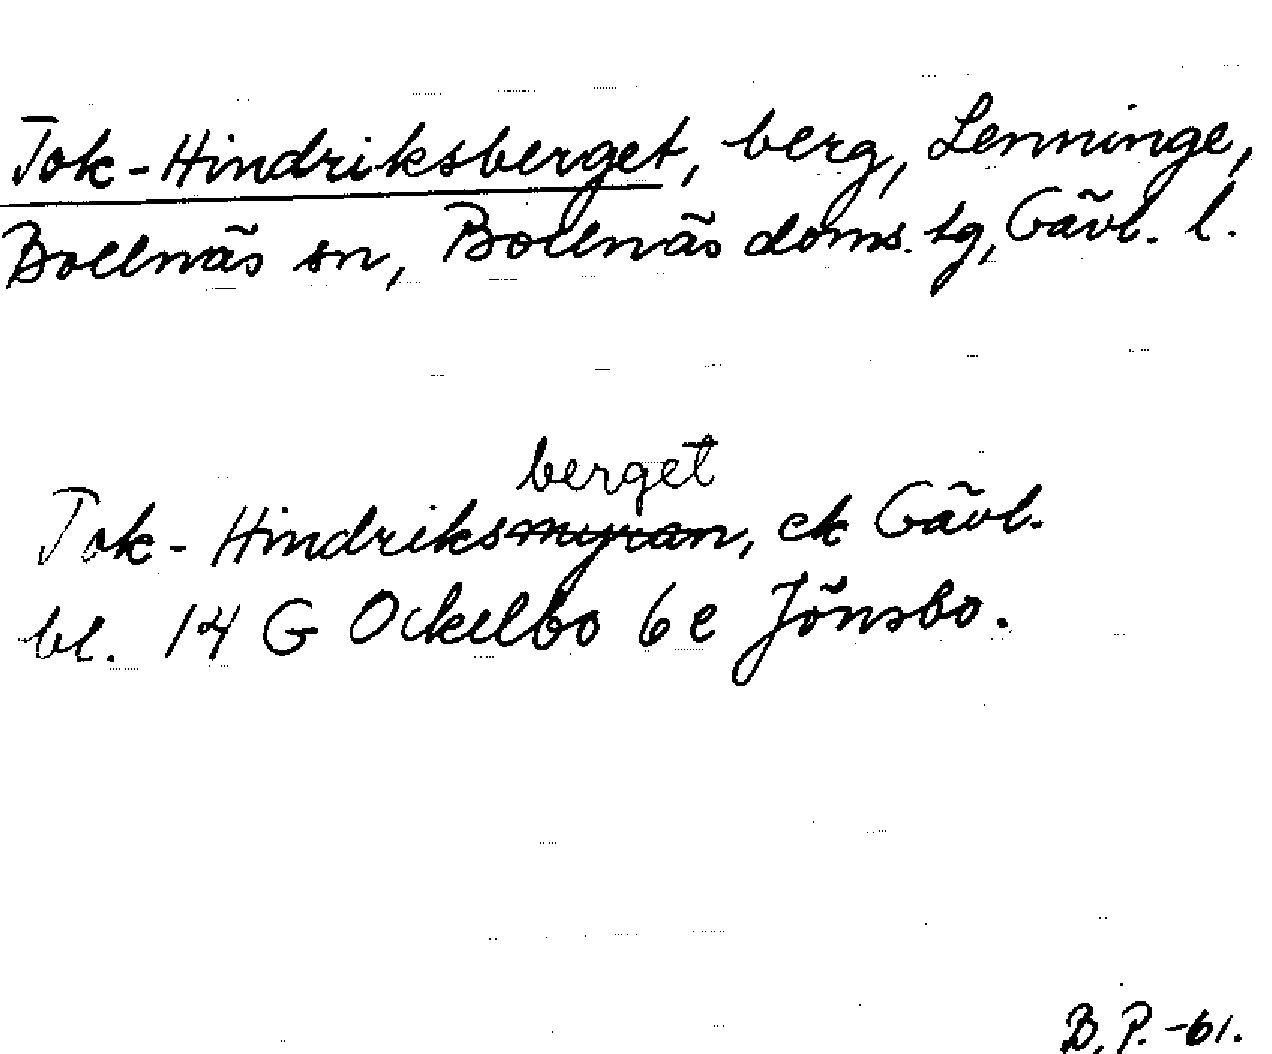 Tok-Hindriksberget, berg, Lenninge,
Bollnäs sn, Bollnäs doms. tg, Gävl. l.
berget
Tok-Hindriksmyran, ek Gävl.
bl. 14 G Ockelbo 6 e Jönsbo.
B. P. -61.